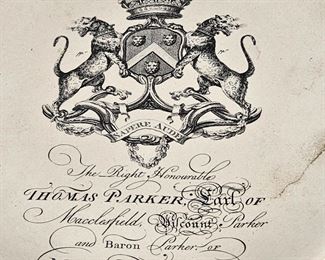 SAPERE AUDE
The Right Honourable
THOMAS PARKER, Earl OF
Macclesfield, Viscount Parker
and Baron Parker of